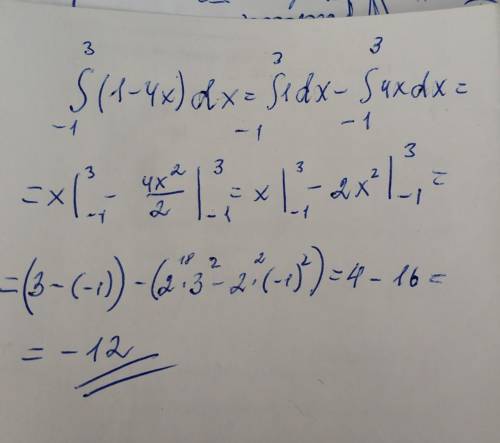 ∫₋₁³ (1-4x) dx = ∫₋₁³ 1dx - ∫₋₁³ 4x dx =
= x |₋₁³ - 4x²/2 |₋₁³ = x |₋₁³ - 2x² |₋₁³ =
= (3 - (-1)) - (2 · 3² - 2 · (-1)²) = 4 - 16 =
18 2
= -12